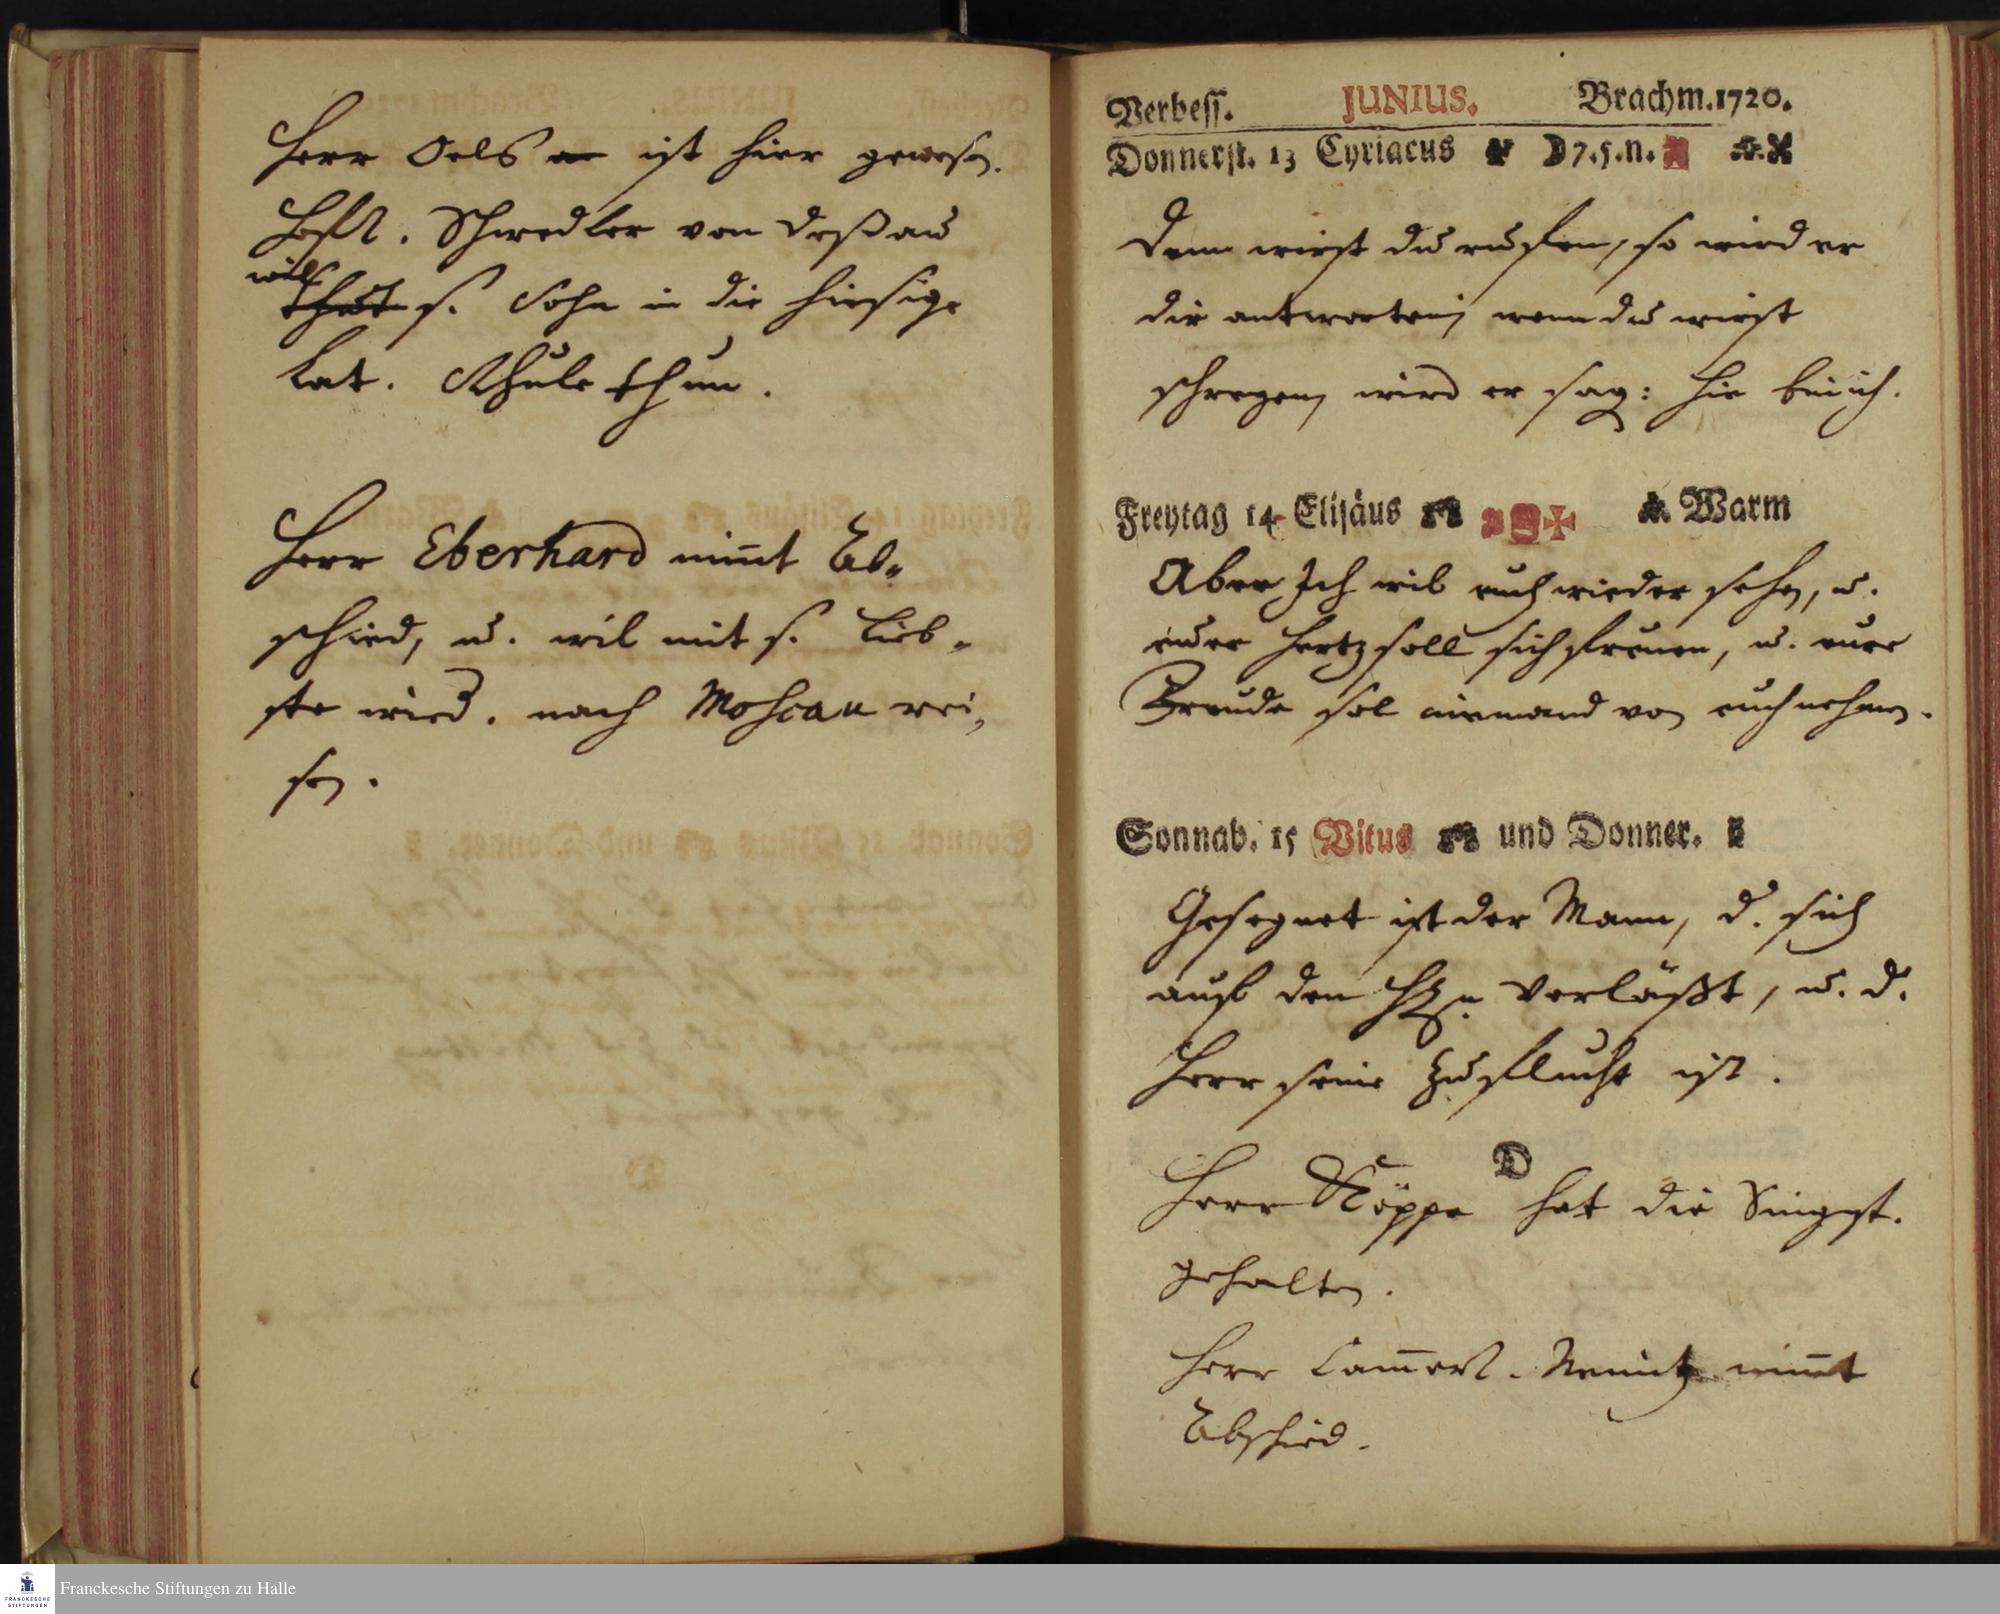 Herr Oels ist hier gewesen.
Schwedler von Deßau
will
thut s. Sohn in die hiesige
Lat. Schule thun.
Herr Eberhard nim̄t Ab-
schied, u. wil mit s. Lieb-
ste wied. nach Moscau rei-
sen.
Verbess. JUNIUS. Brachm. 1720.
Donnerst. 13 Cyriacus 7.5.n.
Denn wirst du ruffen, so wird er
dir antworten, wenn du wirst
schreyen, wird er sag: hie bin ich.
Freytag 14 Elisäus Warm
Aber Ich wil euch wieder sehen, u.
euer Hertz soll sich freuen, u. eure
Freude sol niemand von euch nehmen.
Sonnab. 15 Vitus und Donner.
Gesegnet ist der Mann, d. sich
auf den HErrn verläßt, u. d.
Herr seine Zuflucht ist.
D
Herr Köppe hat die Singest.
gehalten.
Herr nim̄t
Abschied.
Franckesche Stiftungen zu Halle
FRANCKESCHE
STIFTUNGEN